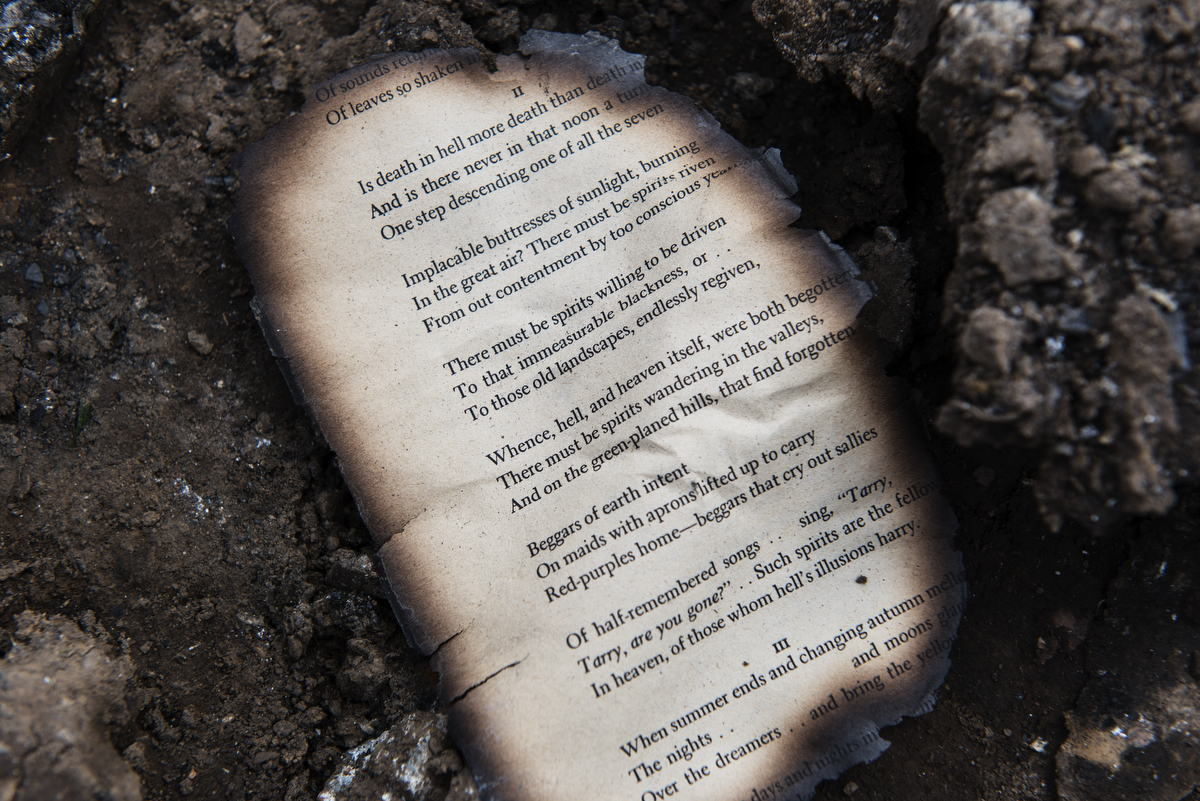 Of sounds
Of leaves so shaken
II
Is death in hell more death than death in
And is there never in that noon a turn
One step descending one of all the seven
Implacable buttresses of sunlight, burning
In the great air? There must be spirits riven
From out contentment by too conscious
There must be spirits willing to be driven
To that immeasurable blackness, or . .
To those old landscapes, endlessly regiven,
Whence, hell, and heaven itself, were both begotten
There must be spirits wandering in the valleys,
And on the green-planed hills, that find forgotten
Beggars of earth intent
On maids with aprons lifted up to carry
Red-purples home—beggars that cry out sallies
Of half-remembered songs . . sing, "Tarry,
Tarry, are you gone?" . . Such spirits are the fellow
In heaven, of those whom hell's illusions harry.
III
When summer ends and changing autumn
The nights . . and moons
Over the dreamers . . and bring the
days and nights